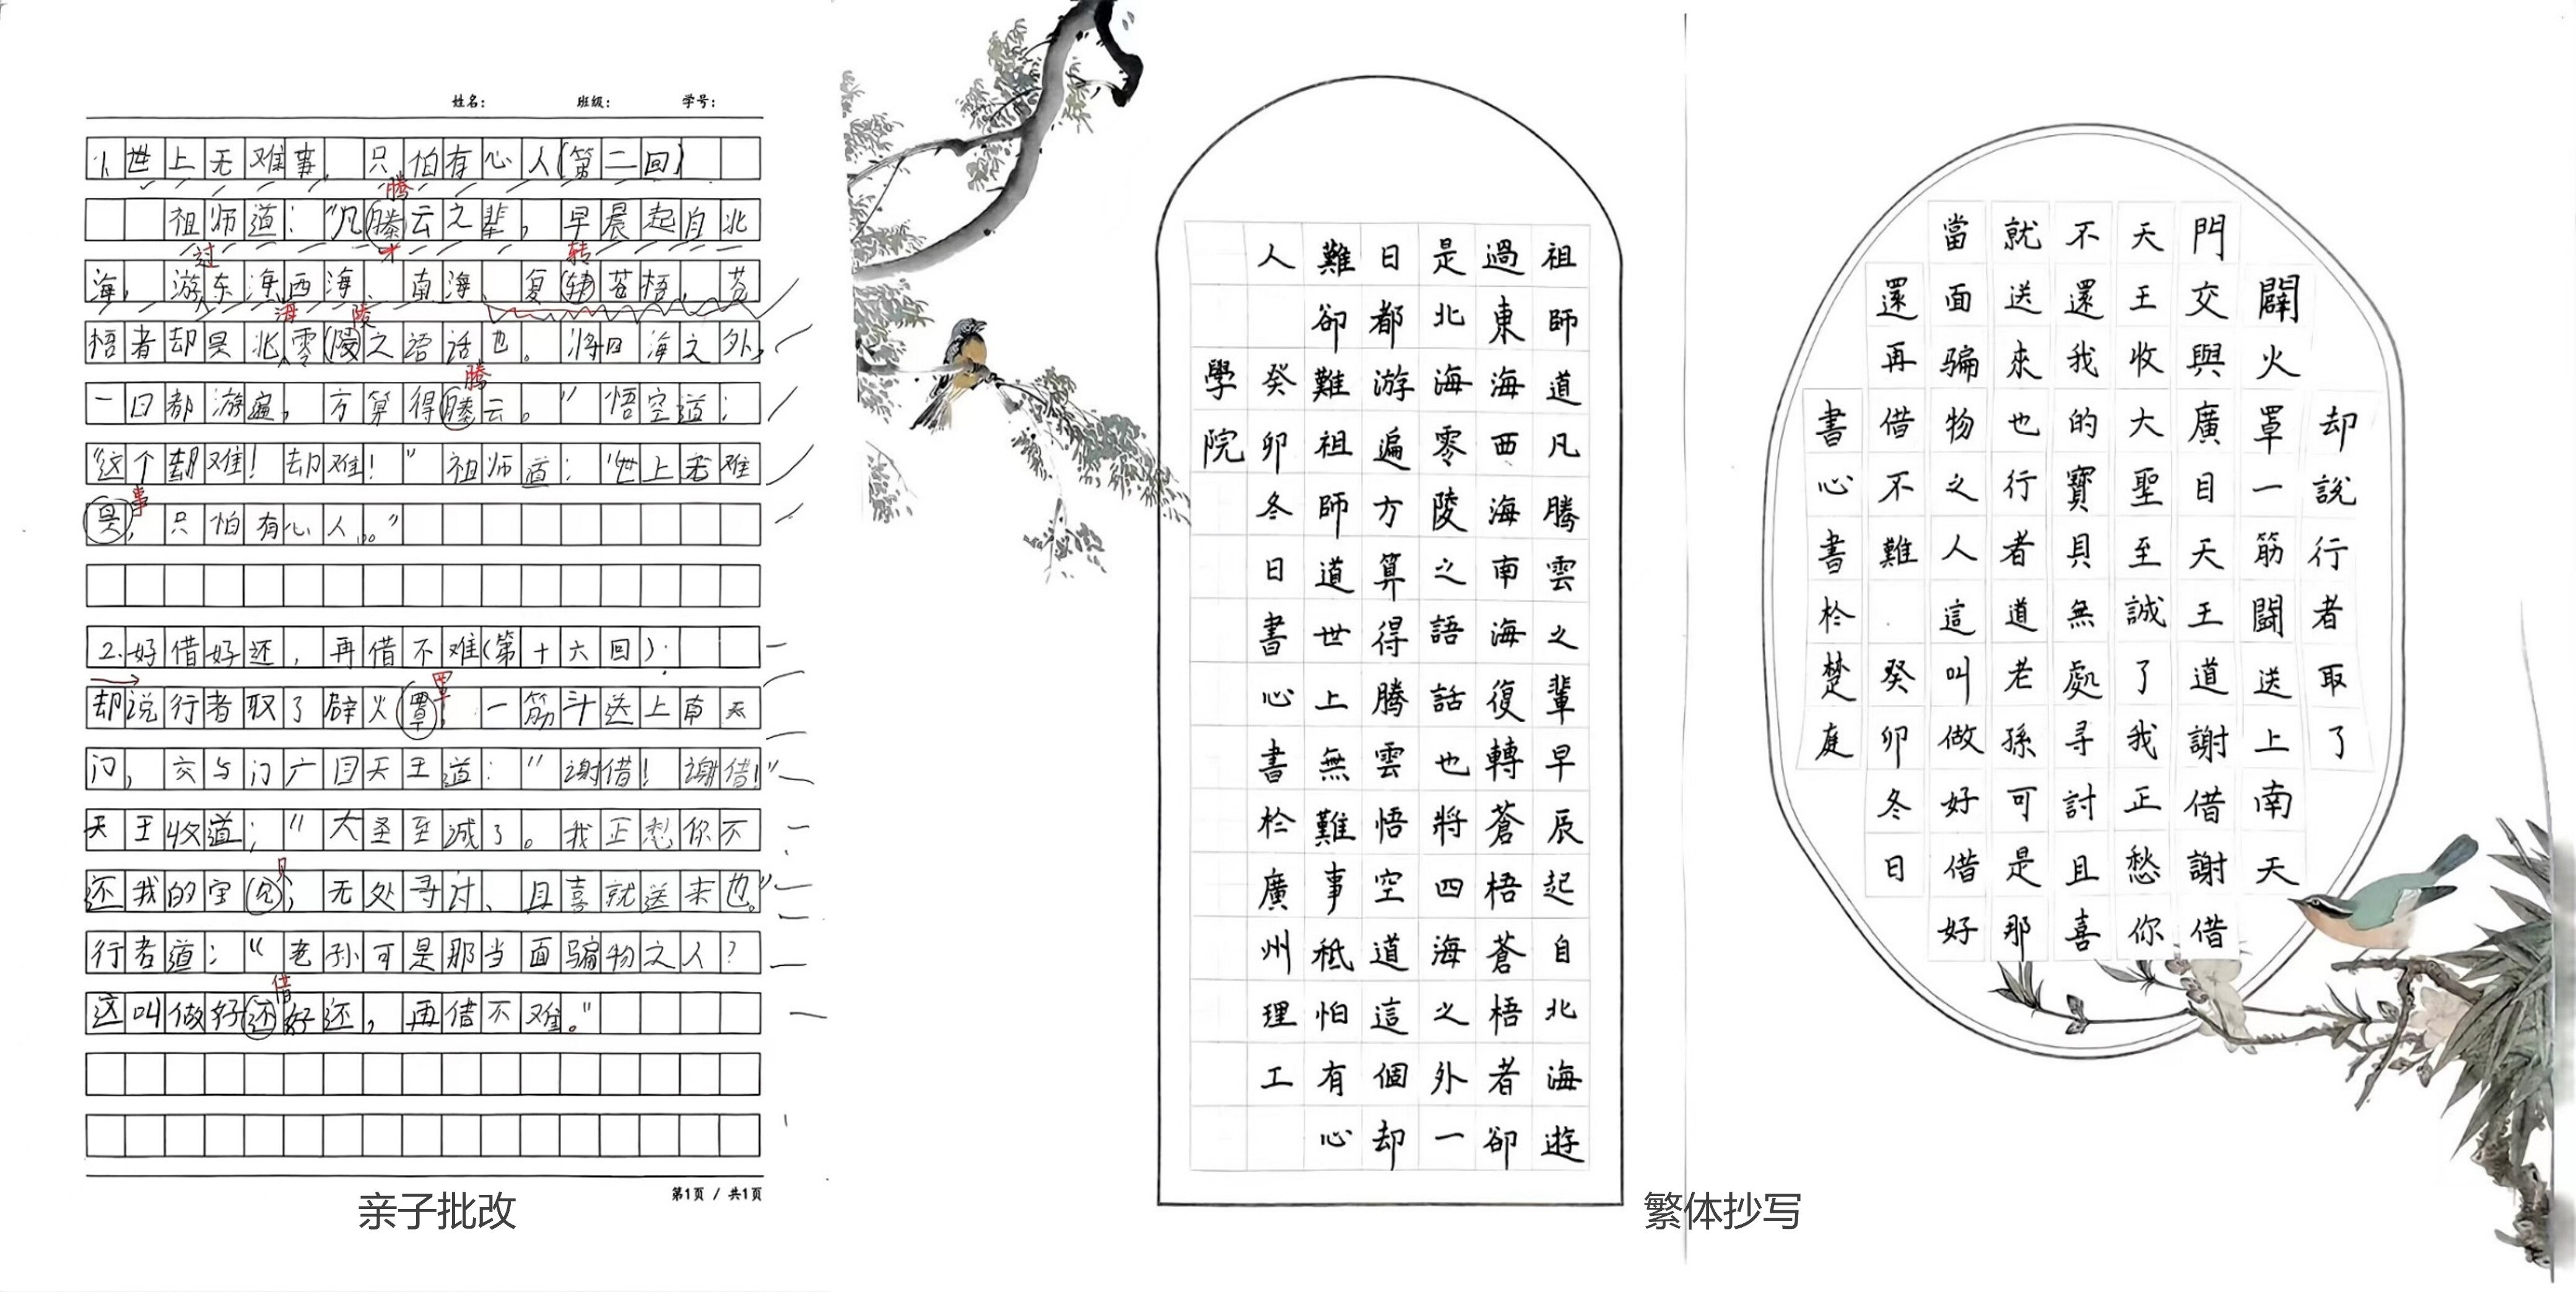 姓名： 班级： 学号：
1、世上无难事，只怕有心人(第二回)
腾
祖师道："凡滕云之辈，早晨起自北
过 转
海，游东海西海、南海、复转苍梧，苍
海 陵
梧者却是北零陵之语话也。将四海之外，
腾
一日都游遍，方算得滕云。"悟空道：
"这个却难！却难！"祖师道："世上无难
事
是，只怕有心人。"
2.好借好还，再借不难(第十六回)
罩
却说行者取了辟火覃，一筋斗送上南天
门，交与门广目天王道："谢借！谢借！"
天王收道："大圣至诚了。我正愁你不
贝
还我的宝，无处寻讨、且喜就送来也。"
行者道："老孙可是那当面骗物之人？
借
这叫做好还好还，再借不难。"
第1页 / 共1页
亲子批改
祖師道凡騰雲之輩早辰起自北海遊
過東海西海南海復轉蒼梧蒼梧者卻
是北海零陵之語話也將四海之外一
日都游遍方算得騰雲悟空道這個却
難卻難祖師道世上無難事秪怕有心
人 癸卯冬日書心書於廣州理工
學院
却說行者取了
闢火罩一筋闘送上南天
門交與廣目天王道謝借謝借
天王收大聖至誠了我正愁你
不還我的寶貝無處尋討且喜
就送來也行者道老孫可是那
當面騙物之人這叫做好借好
還再借不難 癸卯冬日
書心書於楚庭
繁体抄写